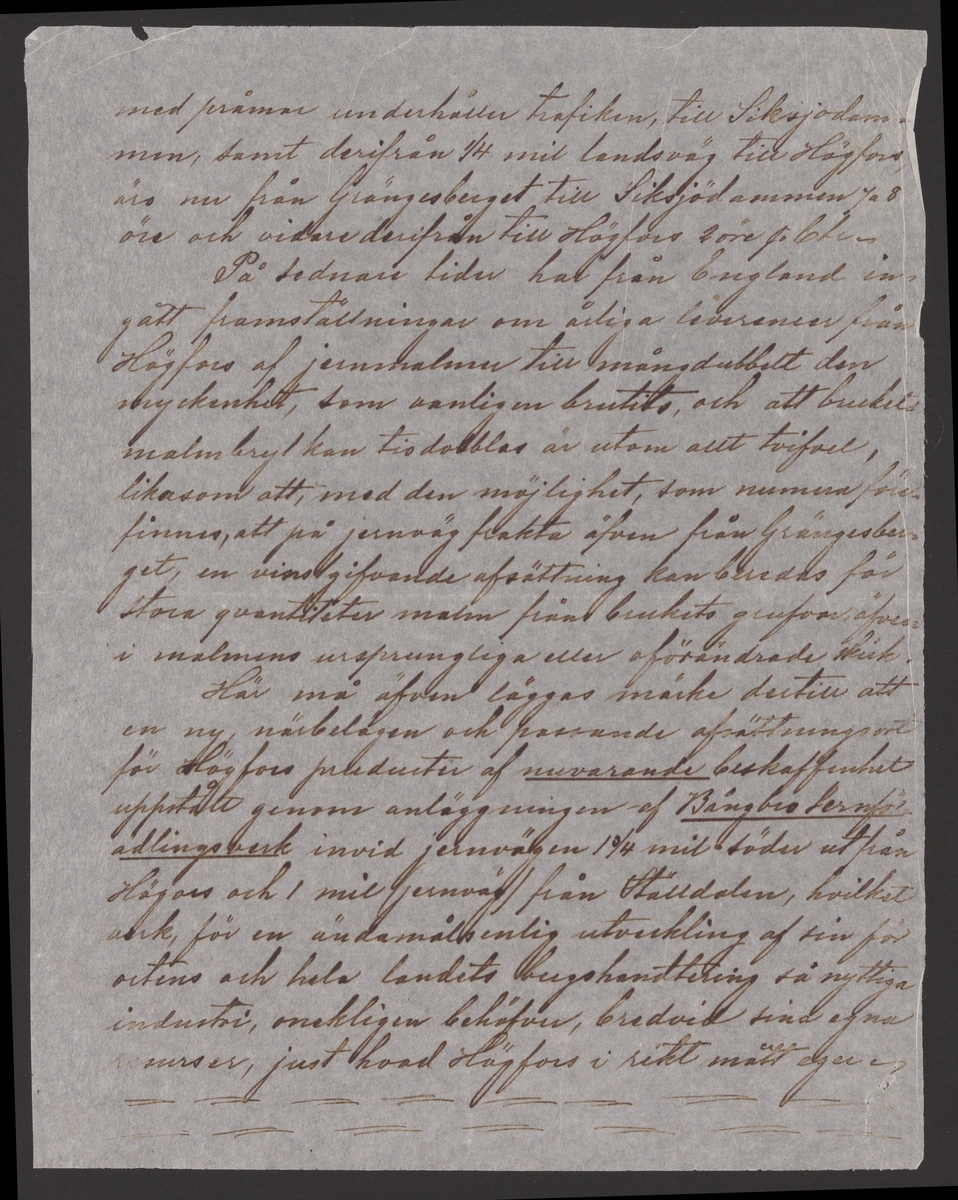 med pråmar underhåller trafiken, till Siksjödam-
men, samt derifrån 1/4 mil landsväg till Högfors,
äro nu från Grängesberget till Siksjödammen 7 a 8
öre och vidare derifrån till Högfors 2 öre p. Ctr.
På sednare tider har från England in-
gått framställningar om årliga leveranser från
Högfors af jernmalmer till mångdubbelt den
myckenhet, som vanligen brutits, och att brukets
malmbryt kan tiodubblas är utom allt tvifvel,
likasom att, med den möjlighet, som numera före-
finnes, att på jernväg frakta äfven från Grängesber-
get, en vinstgifvande afsättning kan beredas för
stora qvantiteter malm från brukets grufvor, äfven
i malmens ursprungliga eller oförändrade skick.
Här må äfven läggas märke dertill att
en ny, närbelägen och passande afsättningsort
för Högfors producter af nuvarande beskaffenhet
uppstått genom anläggningen af Bångbro Jernför-
ädlingsverk invid jernvägen 1 3/4 mil söder ut från
Högfors och 1 mil (jernväg) från Ställdalen, hvilket
verk, för en ändamålsenlig utveckling af sin för
ortens och hela landets bergshandtering så nyttiga
industri, onekligen behöfver, bredvid sina egna
resurser, just hvad Högfors i rikt mått eger.